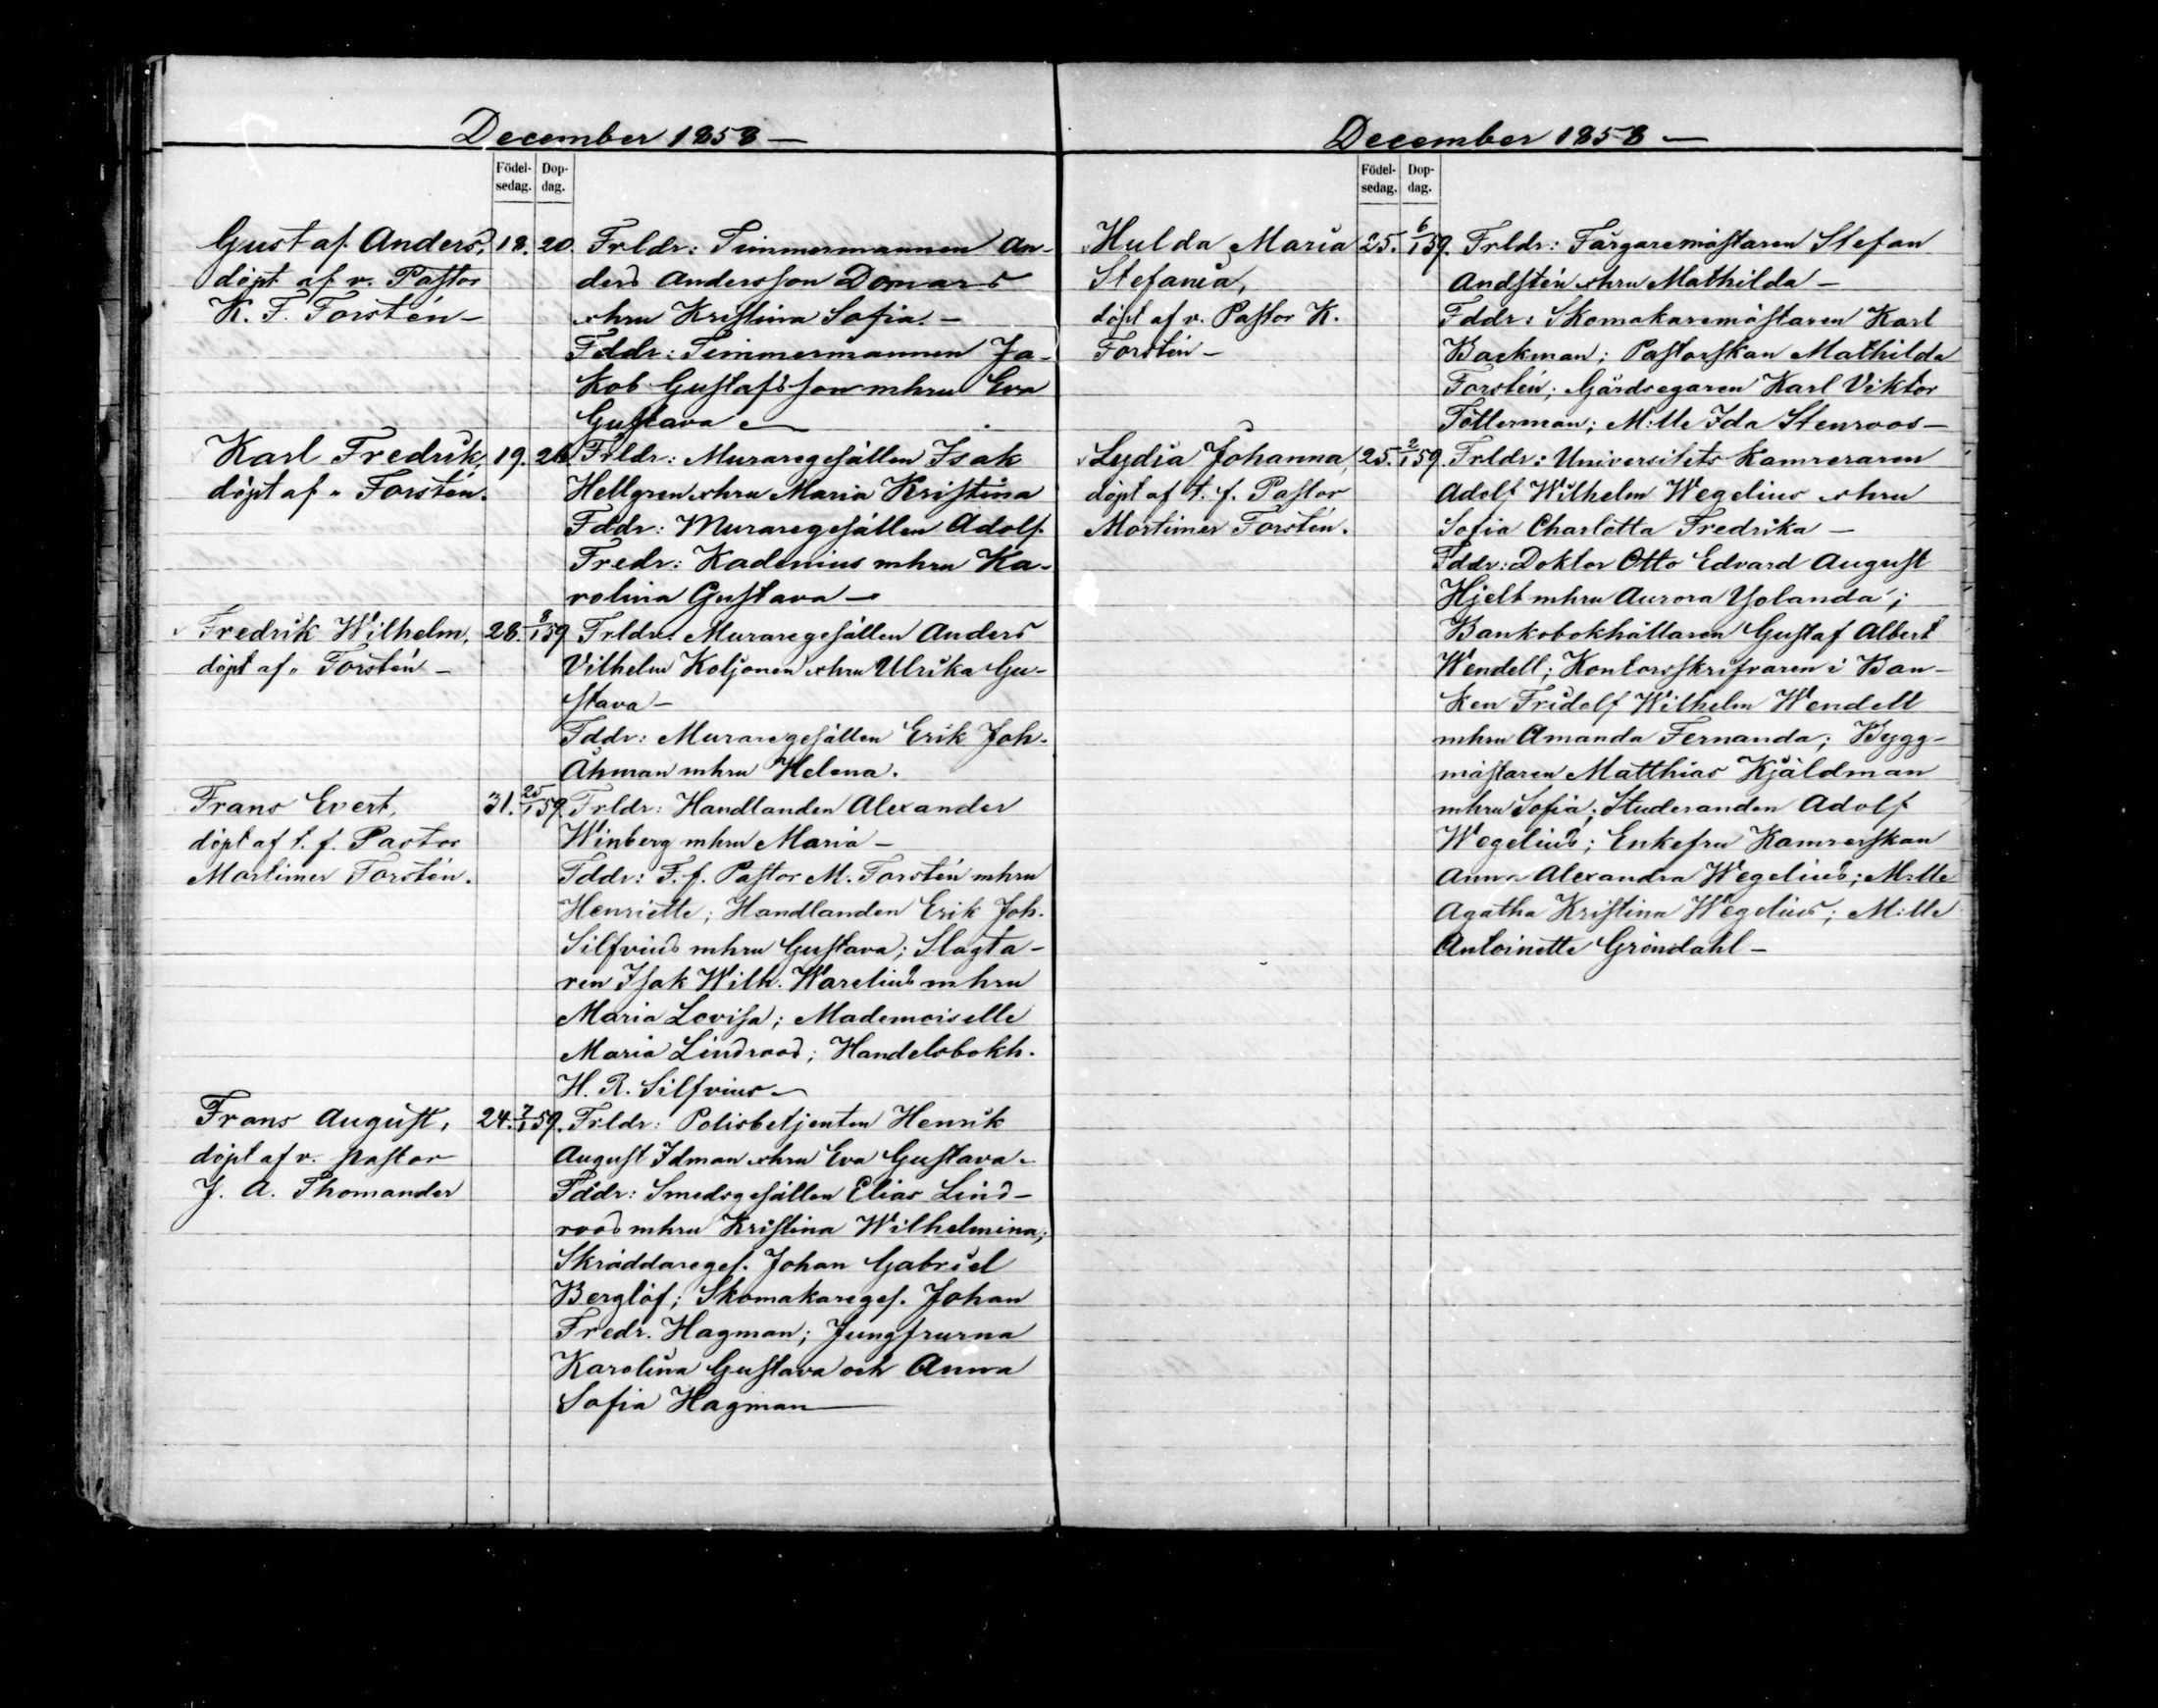 December 1858 —
Födel-
sedag.
Dop-
dag.
Gustaf Anders, 18. 20. Frldr: Timmermannen An-
döpt af v. Pastor ders Andersson Domars
K. F. Forstén — o hru Kristina Sofia. —
Fddr: Timmermannen Ja-
kob Gustafsson mhru Eva
Gustava —
Karl Fredrik, 19. 26. Frldr: Muraregesällen Isak
döpt af " Forstén. Hellgren o hru Maria Kristina
Fddr: Muraregesällen Adolf
Fredr: Kadenius mhru Ka-
rolina Gustava —
Fredrik Wilhelm, 28. 8/1 59. Frldr: Muraregesällen Anders
döpt af " Forstén — Vilhelm Koljonen o hru Ulrika Gu-
stava —
Fddr: Muraregesällen Erik Joh.
Åhman mhru Helena.
Frans Evert, 31. 25/1 59. Frldr: Handlanden Alexander
döpt af t. f. Pastor Winberg mhru Maria —
Mortimer Forstén. Fddr: T. f. Pastor M. Forstén mhru
Henriette; Handlanden Erik Joh.
Silfvius mhru Gustava; Slagta-
ren Isak Wilh. Warelius mhru
Maria Lovisa; Mademoiselle
Maria Lindroos; Handelsbokh.
H. R. Silfvius —
Frans August, 24. 7/1 59. Frldr: Polisbetjenten Henrik
döpt af v. pastor August Idman o hru Eva Gustava.
J. A. Thomander Fddr: Smedsgesällen Elias Lind-
roos mhru Kristina Wilhelmina;
Skräddareges. Johan Gabriel
Berglöf; Skomakareges. Johan
Fredr. Hagman; Jungfrurna
Karolina Gustava och Anna
Sofia Hagman —
December 1858 —
Födel-
sedag.
Dop-
dag.
Hulda Maria 25. 6/1 59. Frldr: Färgaremästaren Stefan
Stefania, Andstén o hru Mathilda —
döpt af v. Pastor K. Fddr: Skomakaremästaren Karl
Forstén — Backman; Pastorskan Mathilda
Forstén; Gårdsegaren Karl Viktor
Tötterman; M:lle Ida Stenroos —
Lydia Johanna, 25. 2/1 59. Frldr: Universitets Kamreraren
döpt af t. f. Pastor Adolf Wilhelm Wegelius o hru
Mortimer Forstén. Sofia Charlotta Fredrika —
Fddr: Doktor Otto Edvard August
Hjelt mhru Aurora Yolanda;
Bankobokhållaren Gustaf Albert
Wendell; Kontorsskrifvaren i Ban-
ken Fridolf Wilhelm Wendell
mhru Amanda Fernanda; Bygg-
mästaren Matthias Kjäldman
mhru Sofia; Studeranden Adolf
Wegelius; Enkefru Kamrerskan
Anna Alexandra Wegelius; M:lle
Agatha Kristina Wegelius; M:lle
Antoinette Gröndahl —